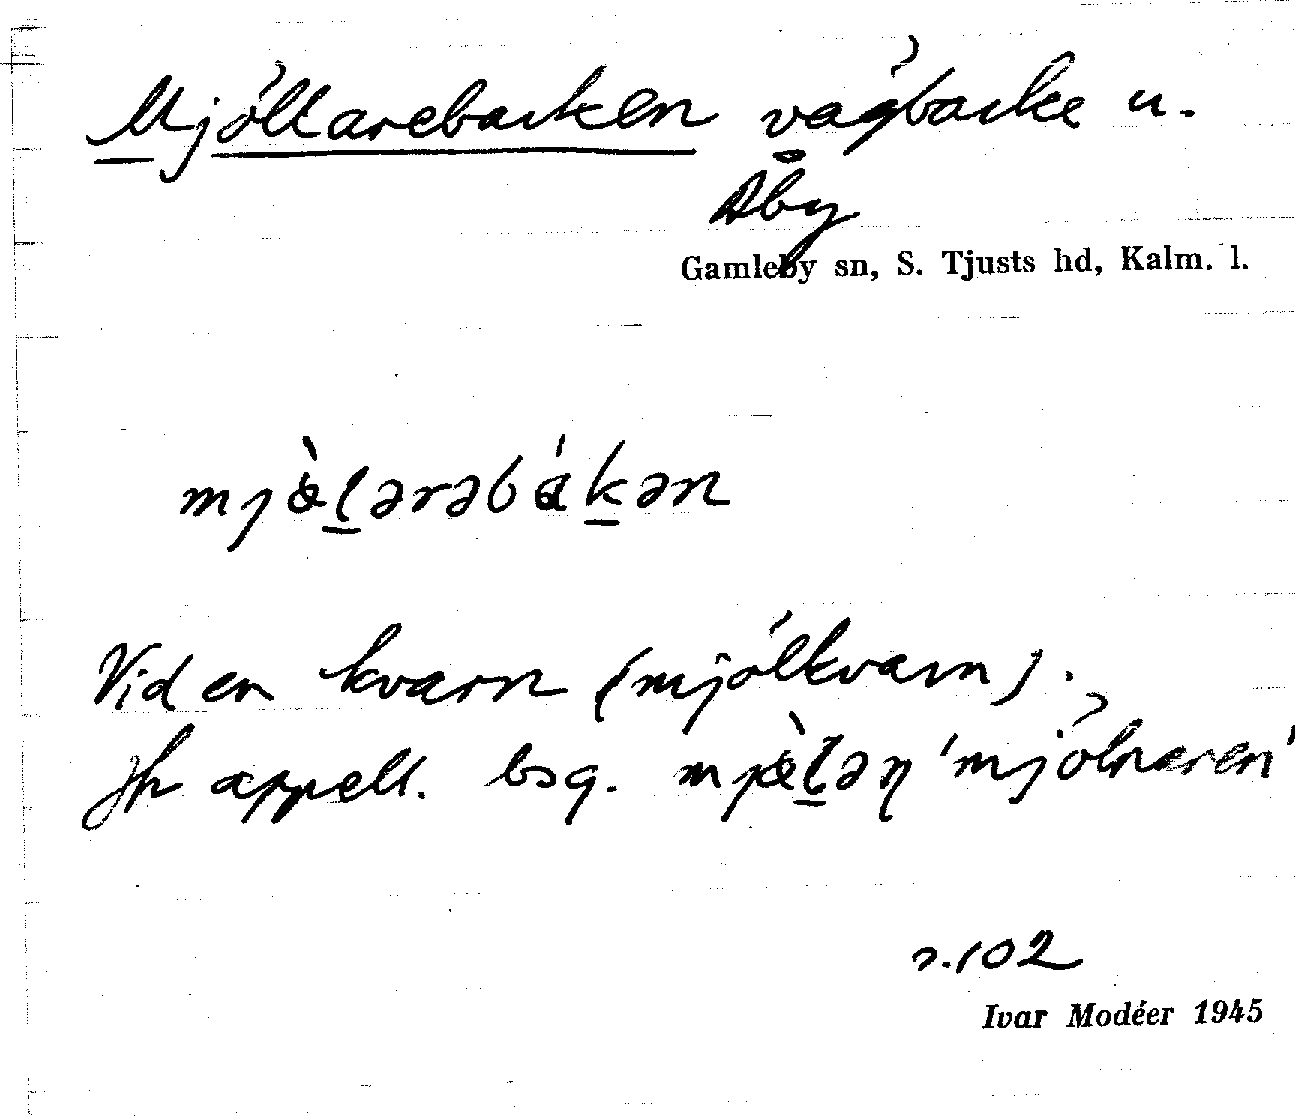 Mjöllarebacken vägbacke u.
Åby
Gamleby sn, S. Tjusts hd, Kalm. l.
mjø̀l̲ərəbák̲ən
Vid en kvarn (mjölkvarn).
Jfr appell. bsg. mjø̀l̲əη 'mjölnaren'
s. 102
Ivar Modéer 1945